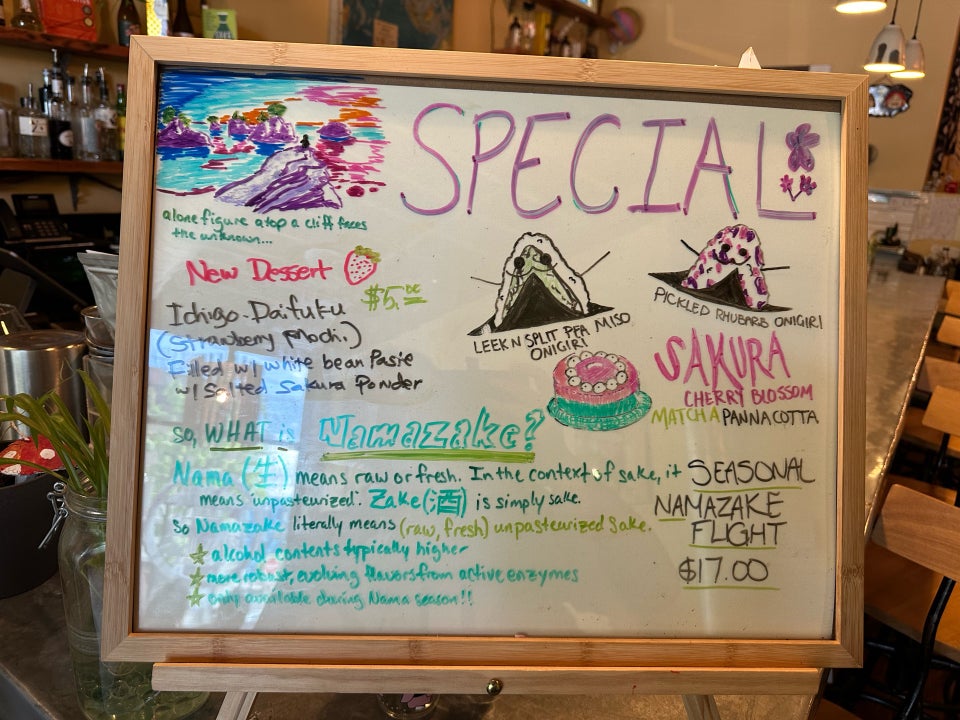 SPECIAL
alone figure atop a cliff faces
the unknown...
New Dessert
$5.00
Ichigo-Daifuku
(Strawberry Mochi.)
Filled w/ white bean Paste
w/ Salted Sakura Powder
LEEK N SPLIT PEA MISO
ONIGIRI
PICKLED RHUBARB ONIGIRI
SAKURA
CHERRY BLOSSOM
MATCHA PANNACOTTA
so, WHAT is Namazake?
Nama (生) means raw or fresh. In the context of sake, it
means "unpasteurized". Zake (酒) is simply sake.
So Namazake literally means (raw, fresh) unpasteurized sake.
☆ alcohol contents typically higher
☆ more robust, evolving flavors from active enzymes
☆ only available during Nama season!!
SEASONAL
NAMAZAKE
FLIGHT
$17.00